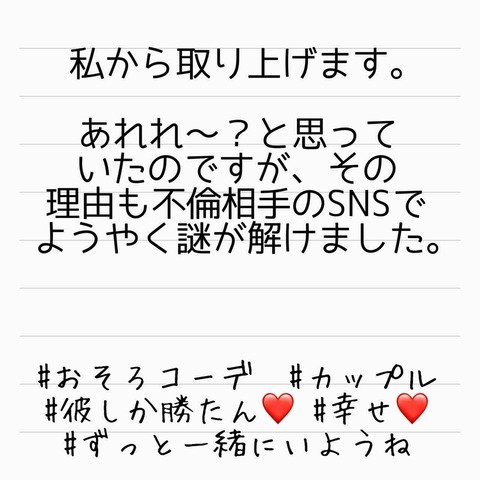 私から取り上げます。
あれれ〜？と思って
いたのですが、その
理由も不倫相手のSNSで
ようやく謎が解けました。
#おそろコーデ #カップル
#彼しか勝たん❤️ #幸せ❤️
#ずっと一緒にいようね